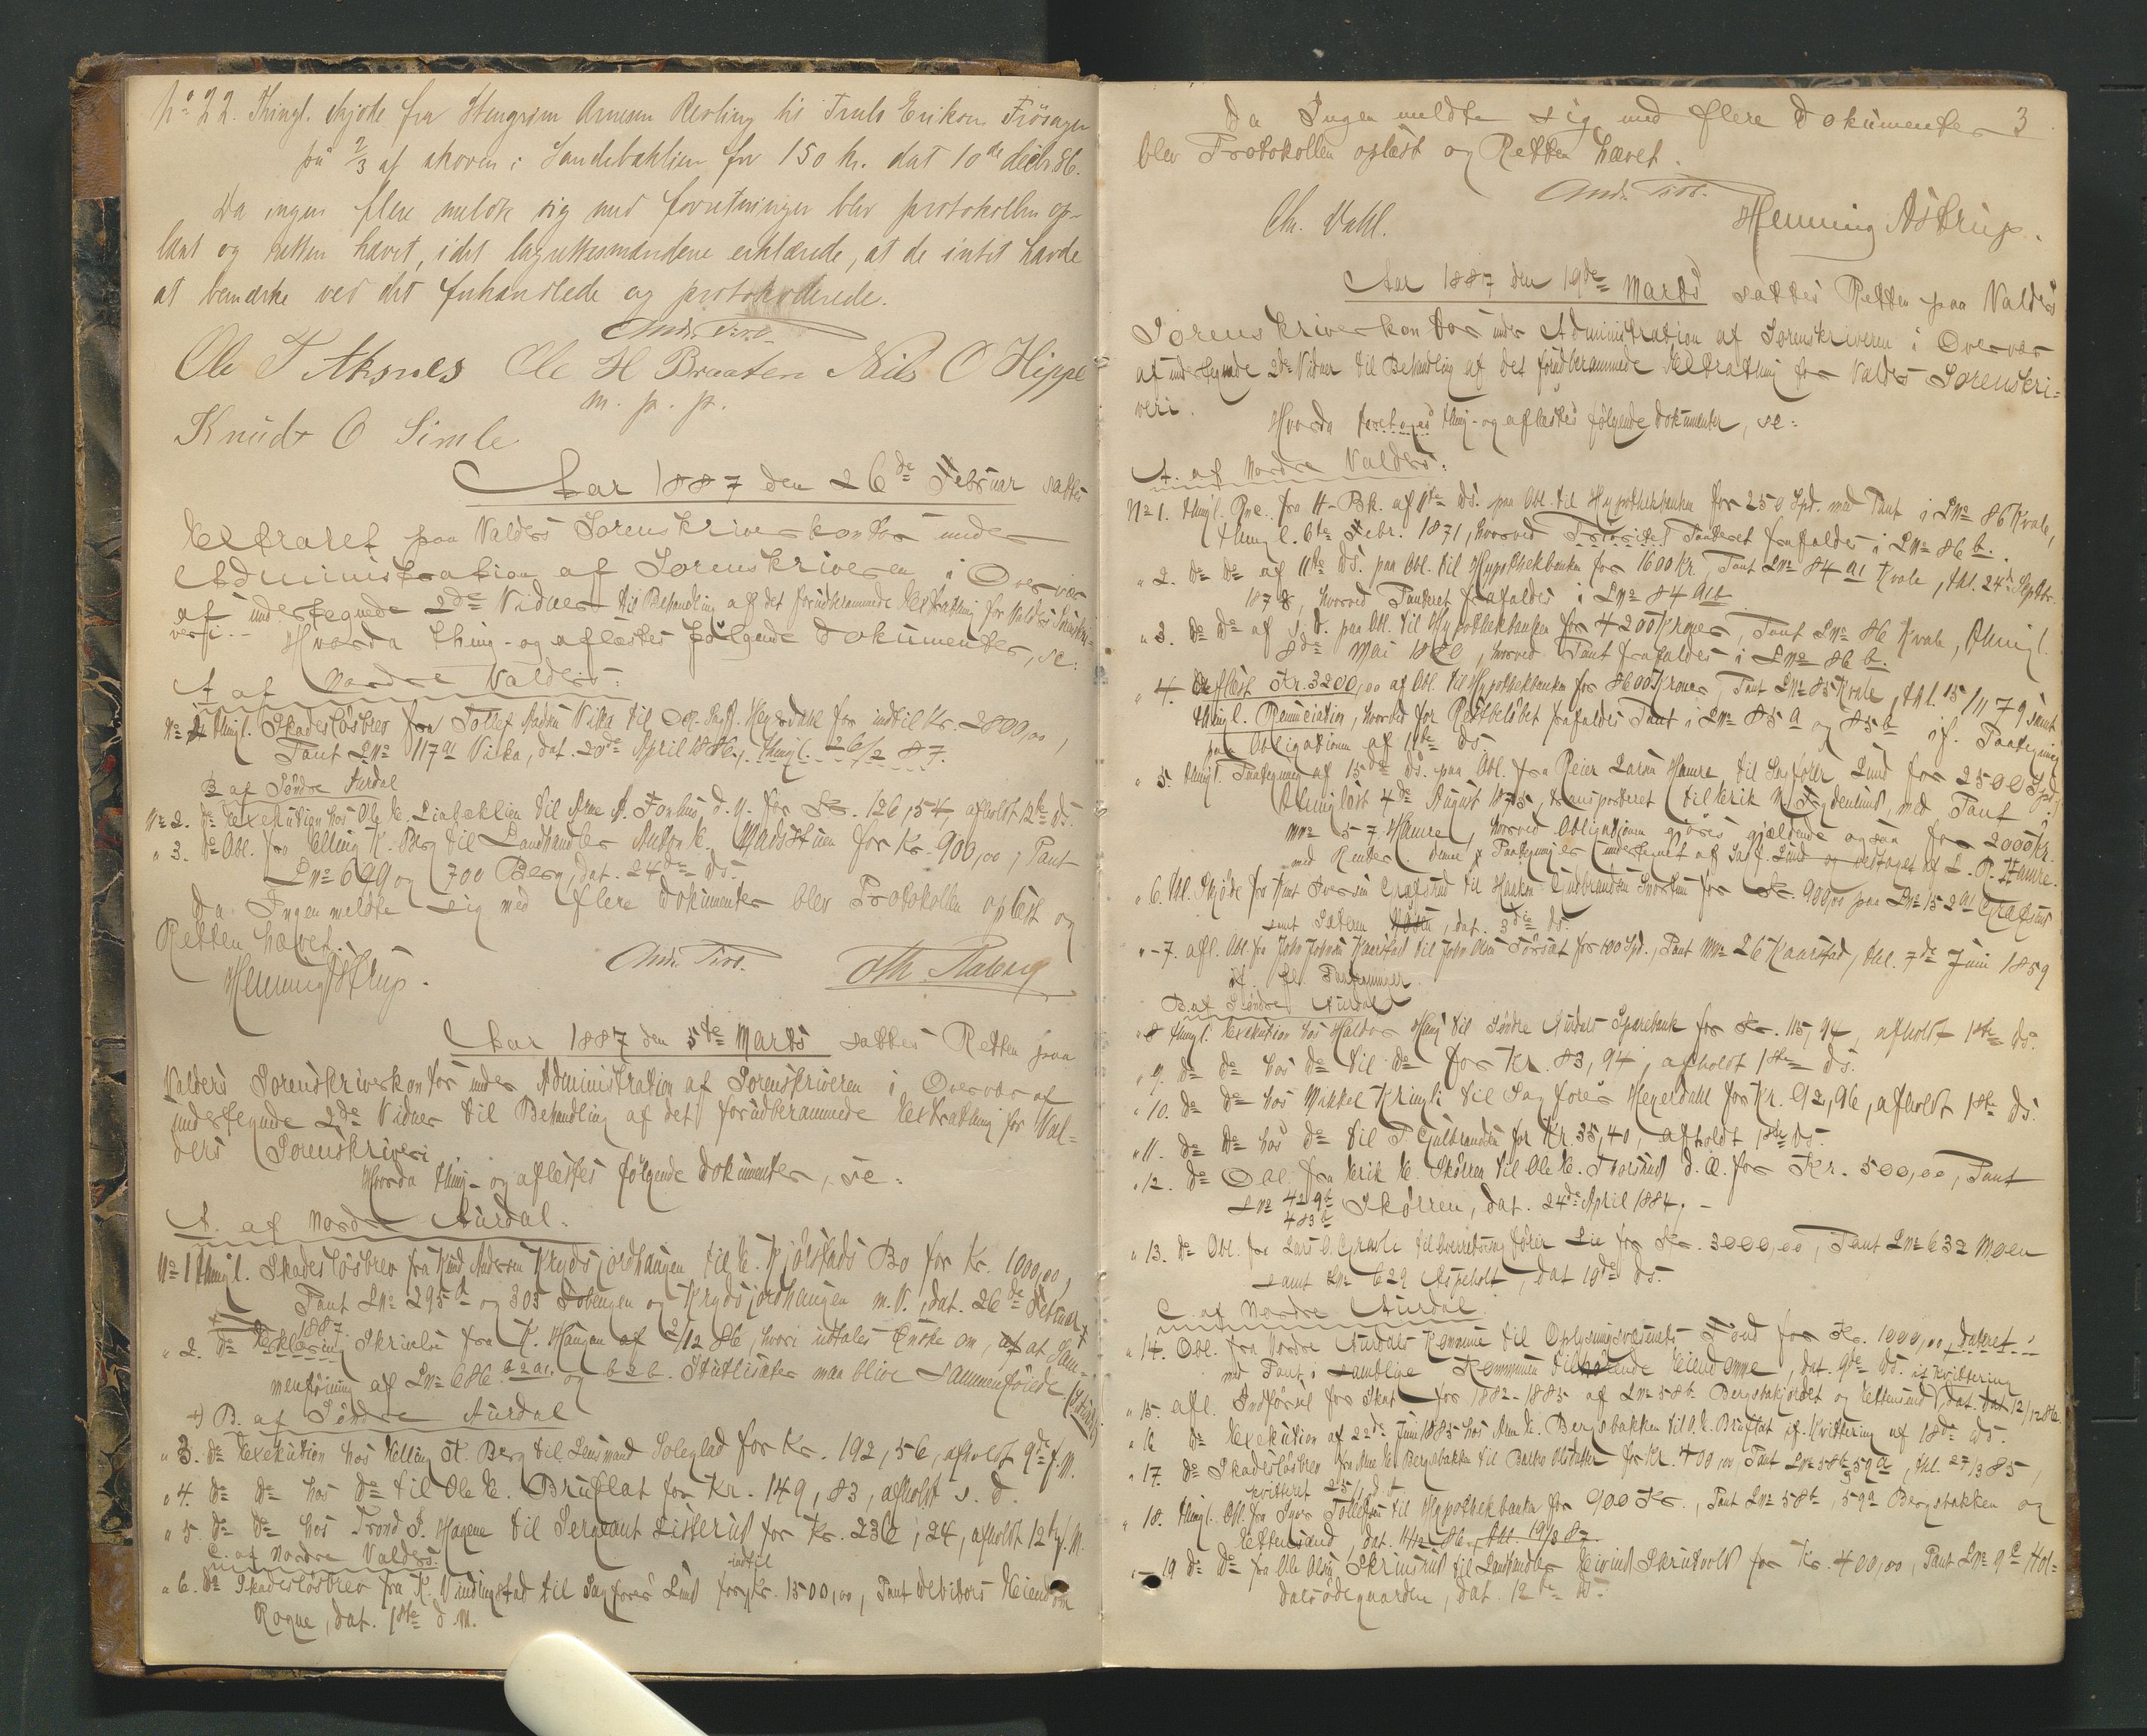 No 22. Thingl. skjøde fra Stengrim Arnesen Revling til Truls Erikson Frösager
på 2/3 af skoven i Sandebaklien for 150 kr. dat 10de decbr. 86.
Da ingen flere meldte sig med forretninger blev protokollen op-
læst og retten hævet, idet lagrettesmændene erklærede, at de intet havde
at bemærke ved det forhandlede og protokollerede.
Ole T Aksnes Ole H Braaten Nils O Hippe
m. p. p.
Knudt O Simle
Aar 1887 den 26de Februar sattes
Extraret paa Valders Sorenskriverkontor under
Administration af Sorenskriveren i Overvær
af undertegnede 2de Vidner til Behandling af det forudberammede Extrathing for Valders Sorenskri-
veri.- Hvorda thing- og aflæstes følgende Dokumenter, se:
A af Nordre Valders:
No 1 thingl. Skadesløsbrev fra Tollef Vika til Heyerdahl for indtil Kr. 2800,00,
Pant LNo 117a1 Vika, dat. 20de April 1886, thingl. 26/2 87.
B af Søndre Aurdal
No 2. do Exekution hos Ole E. Liabøklien til Arne Fønhus d. y. for Kr. 126,54, afholdt 12te ds.
" 3. do Obl. fra Elling K. Berg til Landhandler Madsstuen for Kr. 900,00, Pant
LNo 699 og 700 Berg, dat. 24de ds.
Da Ingen meldte sig med flere Dokumenter blev Protokollen oplæst og
Retten hævet.
Henning Astrup.
Aar 1887 den 5te Marts sattes Retten paa
Valders Sorenskriverkontor under Administration af Sorenskriveren i Overvær af
undertegnede 2de Vidner til Behandling af det forudberammede Extrathing for Val-
ders Sorenskriveri
Hvorda thing- og aflæstes følgende Dokumenter, se:
A. af Nordre Aurdal.
No 1 thingl. Skadesløsbrev fra Knud Andersen Krydsjordhaugen til E. Kjølstads Bo for Kr. 1000,00,
Pant LNo 295 og 303 og Krydsjordhaugen m. V., dat. 26de Februar
1887.
" 2. do Erklæring Skrivelse fra K. Haugen af 2/12 86, hvori udtales Ønske om, at Sam-
menføining af LNo 686 og Stutlisæter maa blive sammenføiede
+) B. af Søndre Aurdal
" 3. do Exekution hos Elling K. Berg til Lensmand Soleglad for Kr. 192,56, afholdt 9de f. M.
" 4. do do hos do til Ole E. Bruflat for Kr. 149,83, afholdt s. d.
" 5. do do hos Trond Hagene til Sergeant Listerud for Kr. 236,24, afholdt 12te f. M.
C. af Nordre Valders.
" 6. do Skadesløsbrev fra K. Vindingstad til Sagfører Lund for indtil Kr. 1500,00, Pant Debitors Eiendom
Rogne, dat. 1ste d. M.
3
Da Ingen meldte sig med flere Dokumenter
blev Protokollen oplæst og Retten hævet.
Ch. Vahl. Henning Astrup.
Aar 1887 den 19de Marts sattes Retten paa Valders
Sorenskriverkontor under Administration af Sorenskriveren i Overvær
af undertegnede 2de Vidner til Behandling af det forudberammede Extrathing for Valders Sorenskri-
veri.
Hvorda foretoges thing- og aflæstes følgende Dokumenter, se:
A. af Nordre Valders:
No 1. thingl. fra H-Bk. af 11te ds. paa Obl. til Hypothekbanken for 250 Spd. med Pant i LNo 86 Kvale,
thingl. 6te Febr. 1871, hvorved Prioritet Panteret frafaldes i LNo 86 b.
" 2. do do af 11te ds. paa Obl. til Hypothekbanken for 1600 Kr. Pant LNo 84 a1 Kvale, thl. 24de Septbr.
1878, hvorved Panteret frafaldes i LNo 84 a1b
" 3. do do af s. d. paa Obl. til Hypothekbanken for 4200 Kroner, Pant LNo 86 Kvale, thingl.
8de Mai 1880, hvorved Pant frafaldes i LNo 86 b.
" 4. Aflæst Kr. 3200,00 af Obl. til Hypothekbanken for 8600 Kroner, Pant LNo 85 Kvale, thl. 15/11 79 samt
thingl. Renuciation, hvorved for Restbeløbet frafaldes Pant i LNo 85a og 85b if. Paategning
paa Obligationen af 11te ds
" 5. thingl. Paategning af 15de ds. paa Obl. fra Reier Larsen Hamre til Sagfører Lund for 2500 Spd,
thinglæst 4de August 1875, transporteret til Erik N. Frydenlund, med Pant i
MNo 57 Hamre, hvorved Obligationen gjøres gjældende ogsaa for 2000 Kr.
med Renter.
" 6. thl. Skjøde fra Knut Iversen Grafstad til Haakon Gudbrandsen Snortum for Kr. 900,00 paa LNo 152a1
samt Sæteren, dat. 3die ds.
" 7. afl. Obl. fra John Johnsen Kaarstad til John Olsen for 100 Spd., Pant MNo 26 Kaarstad, thl. 7de Juni 1859
if. fl. Paategninger.
B. af Søndre Aurdal
" 8 thingl. Exekution hos Haldor Haug til Søndre Aurdals Sparebank for Kr. 115,94, afholdt 1ste ds.
" 9. do do hos do til do for Kr. 83,94, afholdt 1ste ds.
" 10. do do hos Mikkel Kringli til Sagfører Heyerdahl for Kr. 92,96, afholdt 1ste ds.
" 11. do do hos do til P. Gulbrandsen for Kr. 35,40, afholdt 1ste ds.
" 12. do Obl. fra Erik E. Skørren til Ole E. Thorsrud d. Æ. for Kr. 500,00, Pant
LNo 429b 483b Skørren, dat. 24de April 1884. -
" 13. do Obl. fra Lars O. Gravli til Overretssagfører Lie for Kr. 3000,00, Pant LNo 632 Moen
samt LNo 629 Aspeholt, dat 19de ds.
C. af Nordre Aurdal
" 14. Obl. fra Nordre Aurdals Kommune til Oplysningsvæsenets Fond for Kr. 1000,00, dateret
med Pant i samtlige Kommunen tilhørende Eiendomme, dat. 9de ds.
" 15. afl. Indførsel for Skat for 1882-1885 af LNo 58b Bergsbakjordet og Ettensund, dat. 12/12 86. if Kvittering
" 16 do Exekution af 22de Juni 1885 hos Arne E. Bergsbakken til O. E. Bruflat if. Kvittering af 18de ds.
" 17. do Skadesløsbrev fra Arne E. Bergsbakken til for Kr. 400,00, Pant LNo 58b, 59a, thl. 27/3 85,
kvitteret
" 18. thingl. Obl. fra Iver Tollefsen til Hypothekbanken for 900 Kr., Pant LNo 58b, 59a Bergsbakken og
Ettensund, dat. 11/12 86, thl. 19/3 87.
" 19 do do fra Ole Olsen Skrinsrud til Landhandler Eivind Skrutvold for Kr. 400,00, Pant LNo 9c Hol-
dalsødegaarden, dat. 12te ds.